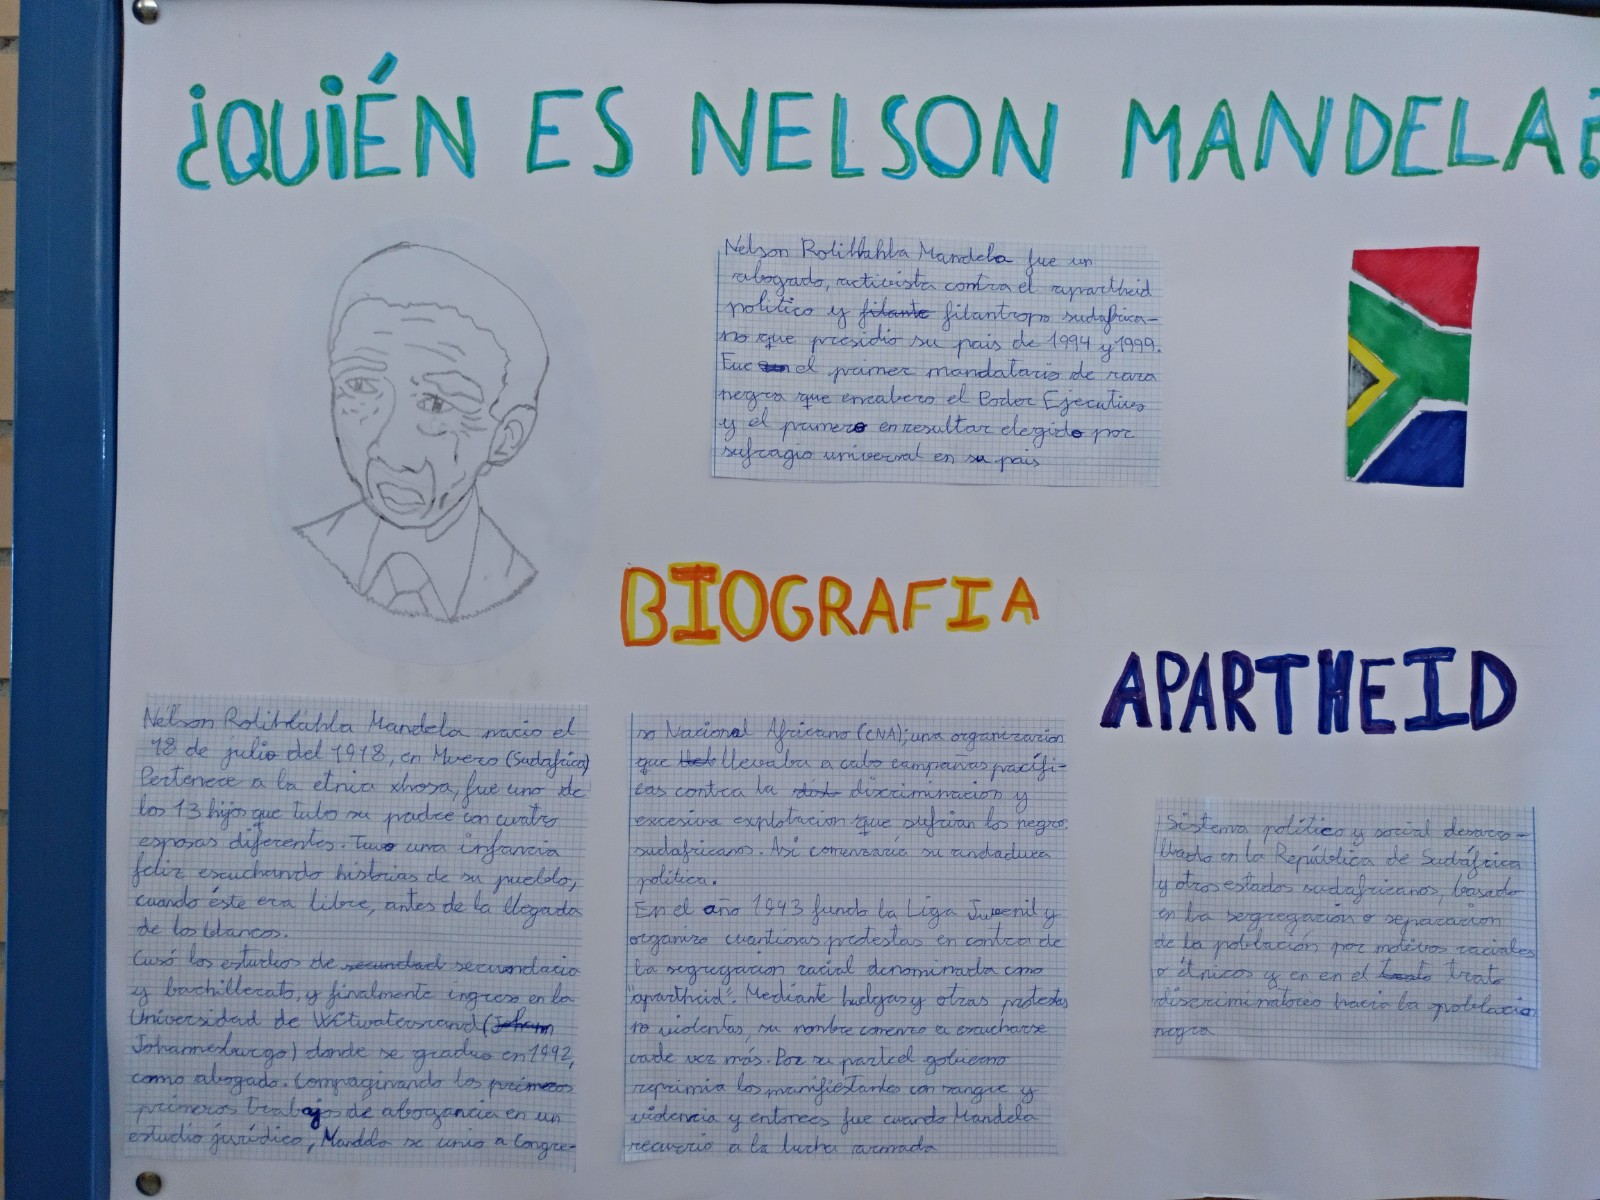 ¿QUIÉN ES NELSON MANDELA?
Nelson Rolihlahla Mandela fue un
abogado, activista contra el apartheid
politico y filante filantropo sudafrica-
no que presidio su pais de 1994 y 1999.
Fue el primer mandatario de raza
negra que encabezo el Poder Ejecutivo
y el primero en resultar elegido por
sufragio universal en su pais
BIOGRAFIA
APARTHEID
Nelson Rolihlahla Mandela nacio el
18 de julio del 1918, en Mvezo (Sudafrica)
Pertenece a la etnia xhosa, fue uno de
los 13 hijos que tubo su padre con cuatro
esposas diferentes. Tuvo una infancia
feliz escuchando historias de su pueblo,
cuando éste era libre, antes de la llegada
de los blancos.
Cusó los estudios de secundad secundaria
y bachillerato, y finalmente ingreso en la
Universidad de Witwatersrand (Joham
Johannesburgo) donde se graduo en 1942,
como abogado. Compaginando los primeros
primeros trabajos de abogancia en un
estudio jurídico, Mandela se unio a Congre-
so Nacional Africano (CNA); una organizacion
que llevaba a cabo campañas pacifi-
cas contra la discriminacion y
excesiva explotacion que sufrian los negro
sudafricanos. Asi comenzaria su andadura
política.
En el año 1943 fundo la Liga Juvenil y
organizo cuantiosas protestas en contra de
la segregacion racial denominada como
"apartheid". Mediante huelgas y otras protestas
no violentas, su nombre comenzo a escucharse
cade vez más. Por su parte el gobierno
reprimia los manifestantes con sangre y
violencia y entonces fue cuando Mandela
recurrio a la lucha armada
Sistema político y social desarro-
llado en la República de Sudáfrica
y otros estados sudafricanos, basado
en la sergregación o separacion
de la población por motivos raciales
o étnicos y en en el trato
discriminatorio hacia la poblacion
negra